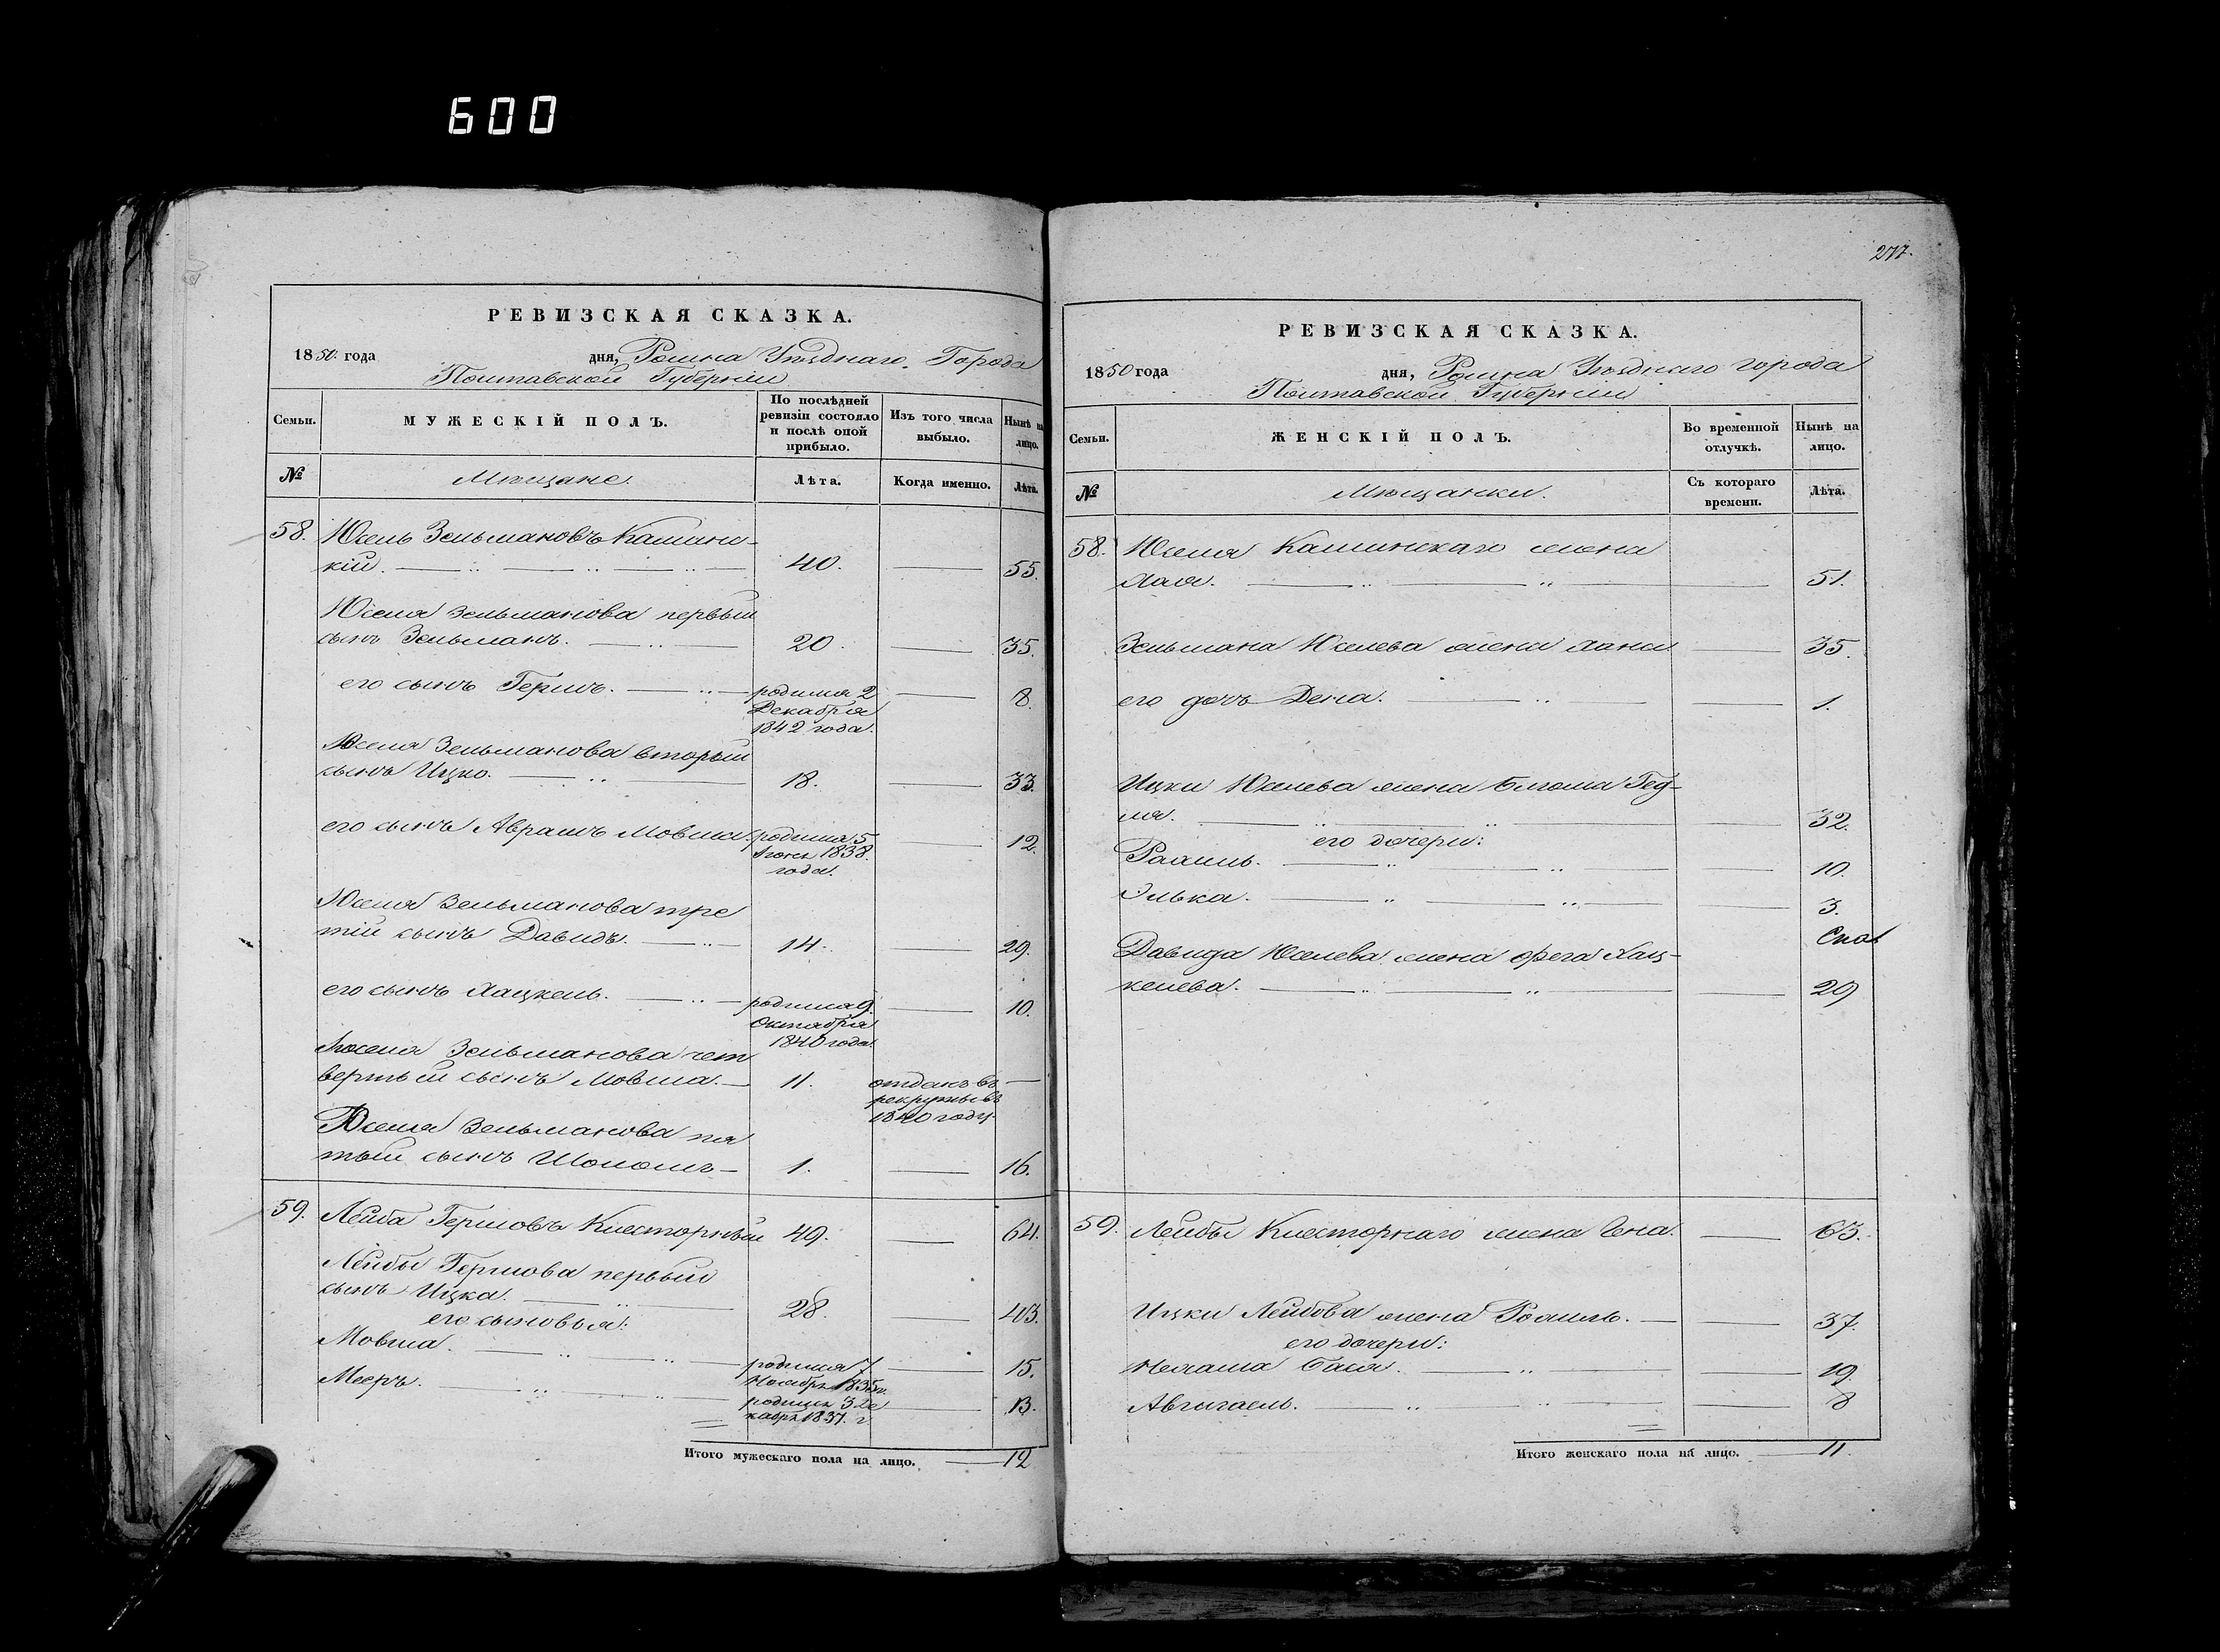 600
РЕВИЗСКАЯ СКАЗКА.
1850 года дня, Ромна Уѣзднаго Города
Полтавской Губерніи
Семьи. МУЖЕСКІЙ ПОЛЪ. По послѣдней ревизіи состояло и послѣ оной прибыло. Изъ того числа выбыло. Нынѣ на лицо.
№ Мѣщане. Лѣта. Когда именно. Лѣта.
58. Юсель Зельмановъ Кашин-
кій. 40. 55.
Юселя Зельманова первый
сынъ Зельманъ. 20. 35.
его сынъ Гершъ. родился 2 8.
Декабря
1842 года.
Юселя Зельманова вторый
сынъ Ицко. 18. 33.
его сынъ Аврамъ Мовша. родился 5 12.
1838.
года.
Юселя Зельманова тре
тій сынъ Давидъ. 14. 29.
его сынъ Хацкель. родился 9 10.
Октября
1840 года.
Юселя Зельманова чет
вертый сынъ Мовша. 11. отданъ въ
рекруты въ
1840 году.
Юселя Зельманова пя
тый сынъ Шоломъ 1. 16.
59. Лейба Гершовъ Клесторный 49. 64.
Лейбы Гершова первый
сынъ Ицка. 28. 43.
его сыновья:
Мовша. родился 7 15.
Ноября 1835 г.
Мееръ. родился 3 де 13.
кабря 1837. г
Итого мужескаго пола на лицо. 12
277.
РЕВИЗСКАЯ СКАЗКА.
1850 года дня, Ромна Уѣзднаго города
Полтавской Губерніи
Семьи. ЖЕНСКІЙ ПОЛЪ. Во временной отлучкѣ. Нынѣ на лицо.
№ Мѣщанки. Съ котораго времени. Лѣта.
58. Юселя Кашинскаго жена
Хая. 51.
Зельмана Юселева жена Хана 35.
его дочь Дена. 1.
Ицки Юселева жена Блюма Гед-
ля. 32.
его дочери:
Рахиль. 10.
Элька. 3.
Давида Юселева жена Фрега Хац-
келева. 29
59. Лейбы Клесторнаго жена Гена. 63.
Ицки Лейбова жена Рохиль. 37.
его дочери:
Нехама Бася. 19.
Авигаель. 8
Итого женскаго пола на лицо. 11.